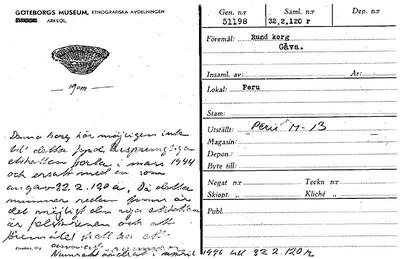 GÖTEBORGS MUSEUM, ETNOGRAFISKA AVDELNINGEN
ARKEOL.
Gen. n:r
51198
Saml. n:r
32,2,120 r
Dep. n:r
Föremål: Rund korg
Gåva.
19 cm
Insaml. av:
År:
Lokal: Peru
Stam:
Utställt: Peru M-13
Magasin:
Depon.:
Byte till:
Denna korg hör möjligen inte
till detta fynd. Ursprungliga
etiketten borta i mars 1944
och ersatt med en som
angav 32.2.120 a. Då detta
nummer redan finns är
det möjligt den nya etiketten
är felskriven och att
föremålet skall ha ett
annat nummer
Numret ändrat i april 1946 till 32 2.120 r
Negat n:r
Teckn n:r
Skiopt. »
Kliché »
Publ.